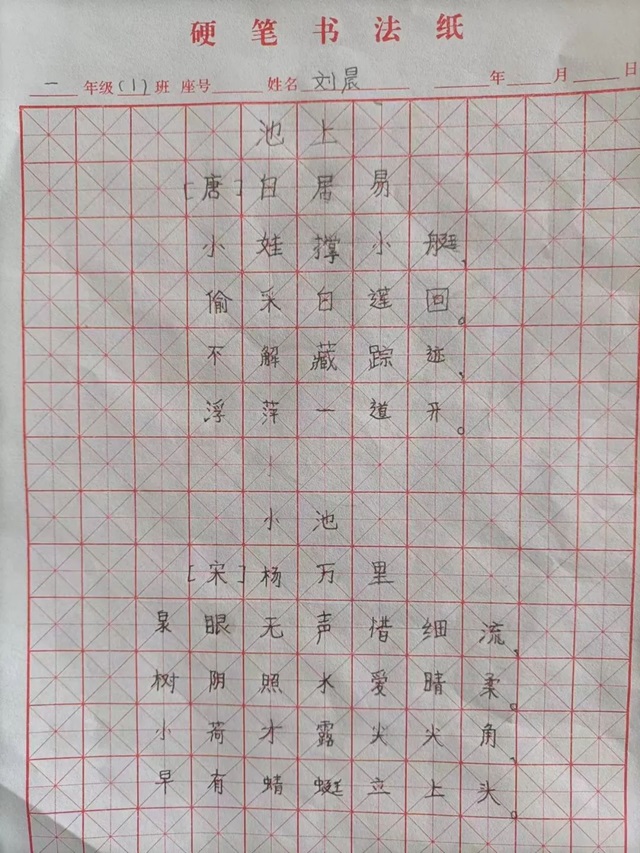 硬笔书法纸
一 年级(1)班 座号 姓名 刘晨 年 月 日
池上
[唐]白居易
小娃撑小艇,
偷采白莲回。
不解藏踪迹、
浮萍一道开。
小池
[宋]杨万里
泉眼无声惜细流,
树阴照水爱晴柔。
小荷才露尖尖角、
早有蜻蜓立上头。